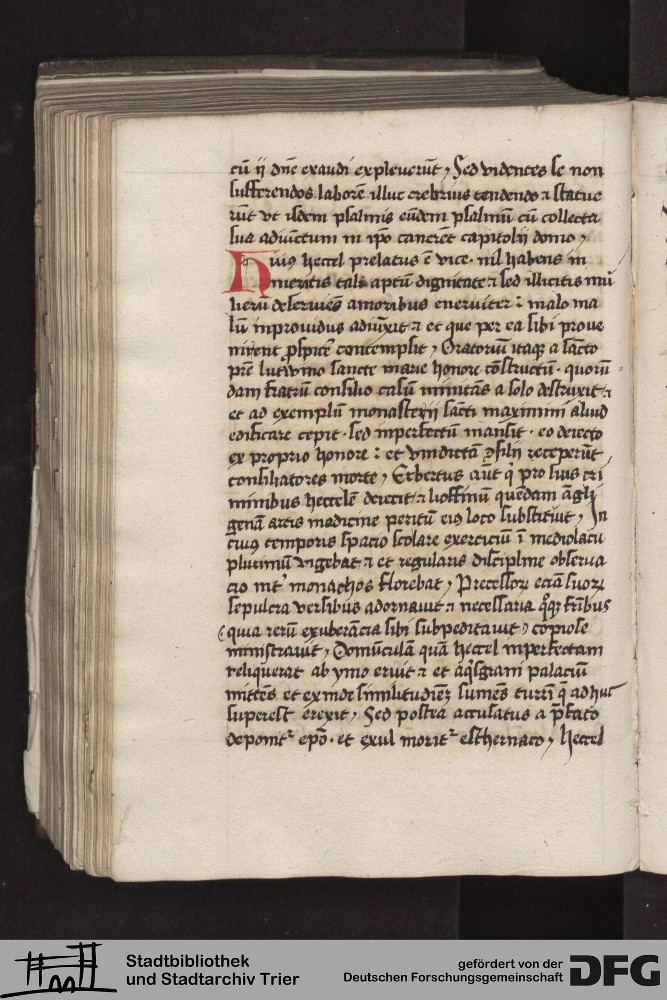 cū ij dn̄e exaudi expleverūt, Sed videntes se non
sufferendos laborē illuc crebrius tendendo ⁊ statue
rūt vt isdem psalmis eūdem psalmū cū collecta
sua adiunctum in ip̄o cancrēt capitolij domo,
Huiꝰ heccel prelatus ē vice· nil habens in
meritis tali aptū dignitate ⁊ sed illicitis mu
lierū deserviēs amoribus eneruiter: malo ma
lū inprovidus adiūxit ⁊ et que per ea sibi prove
nirent ꝓspicē contempsit, Oratoriū itaqꝫ a sācto
pr̄e lutwino sancte marie honore cōstructū· quorū
dam fratrū consilio casū minitās a solo destruxit ⁊
et ad exemplū monasterij sācti maximini aliud
edificare cepit· sed inperfectū mansit· eo deiecto
ex proprio honore: et vindictā dei filij receperūt
consiliatores morte, Etbertus aūt qͥ pro suis cri
minibus heccelē deiecit ⁊ hoffinū quēdam āgli
genā artis medicine peritū eiꝰ loco substituit, In
cuiꝰ temporis spacio scolare exerciciū ī mediolacū
plurimū vigebat ⁊ et regularis discipline observa
cio int̓ monachos florebat, Precessoꝝ eciā suoꝝ
sepulcra versibus adornavit ⁊ necessaria qͦqꝫ fr̄ibus
(quia rerū exuberācia sibi subpeditavit) copiose
ministravit, Domūculā quā heccel inperfectam
reliquerat ab ymo eruit ⁊ et aqͥsgrani palaciū
mittēs et exinde similitudinē sumēs turrī q̄ adhuc
superest erexit, Sed postea accusatus a p̄fato
deponit᷑ ep̄o· et exul morit᷑ esthernaco, heccel
Stadtbibliothek
und Stadtarchiv Trier
gefördert von der
Deutschen Forschungsgemeinschaft
DFG